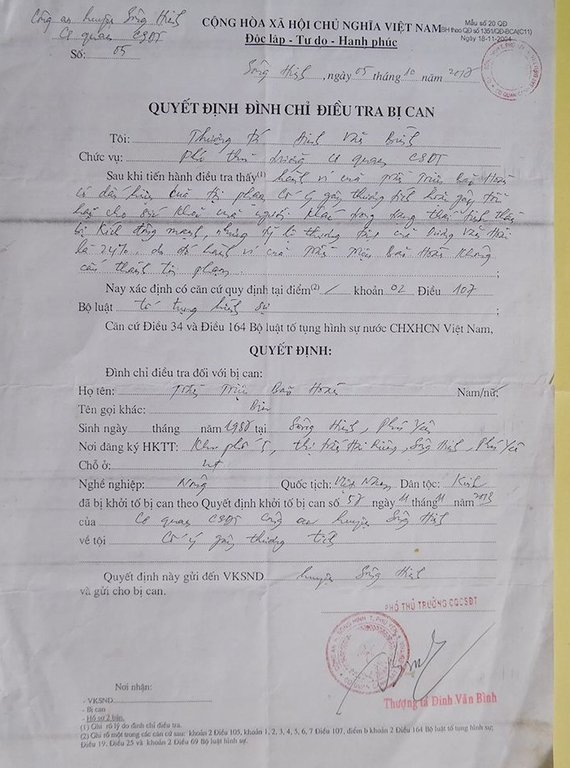 Công an huyện Sông Hinh
Cơ quan CSĐT
Số: 05
CỘNG HÒA XÃ HỘI CHỦ NGHĨA VIỆT NAM
Độc lập - Tự do - Hạnh phúc
Mẫu số 20 QĐ
BH theo QĐ số 1351/QĐ-BCA(C11)
Ngày 18-11-2004
Sông Hinh, ngày 05 tháng 10 năm
QUYẾT ĐỊNH ĐÌNH CHỈ ĐIỀU TRA BỊ CAN
Tôi: Thượng tá Đinh Văn Bình
Chức vụ: Phó thủ trưởng cơ quan CSĐT
Sau khi tiến hành điều tra thấy(1) hành vi của
có dấu hiệu của tội phạm Cố ý gây thương tích hoặc gây tổn
hại cho sức khỏe của người khác trong trạng thái tinh thần
bị kích động mạnh, nhưng tỷ lệ thương tật của Dương Văn
là 24%, do đó hành vi của không
cấu thành tội phạm. ;
Nay xác định có căn cứ quy định tại điểm(2) / khoản 02 Điều 107
Bộ luật tố tụng hình sự ;
Căn cứ Điều 34 và Điều 164 Bộ luật tố tụng hình sự nước CHXHCN Việt Nam,
QUYẾT ĐỊNH:
Đình chỉ điều tra đối với bị can:
Họ tên: Nam/nữ:
Tên gọi khác:
Sinh ngày tháng năm tại Sông Hinh, Phú Yên
Nơi đăng ký HKTT: Khu phố 5, thị trấn Hai Riêng, Sông Hinh, Phú Yên
Chỗ ở: nt
Nghề nghiệp: Nông Quốc tịch: Việt Nam Dân tộc: Kinh
đã bị khởi tố bị can theo Quyết định khởi tố bị can số 58 ngày 11 tháng 11 năm
của Cơ quan CSĐT Công an huyện Sông Hinh
về tội Cố ý gây thương tích
Quyết định này gửi đến VKSND huyện Sông Hinh
và gửi cho bị can.
PHÓ THỦ TRƯỞNG CQCSĐT
Thượng tá Đinh Văn Bình
Nơi nhận:
- VKSND
- Bị can
- Hồ sơ 2 bản.
(1) Ghi rõ lý do đình chỉ điều tra.
(2) Ghi rõ một trong các căn cứ sau: khoản 2 Điều 105, khoản 1, 2, 3, 4, 5, 6, 7 Điều 107, điểm b khoản 2 Điều 164 Bộ luật tố tụng hình sự;
Điều 19, Điều 25 và khoản 2 Điều 69 Bộ luật hình sự.